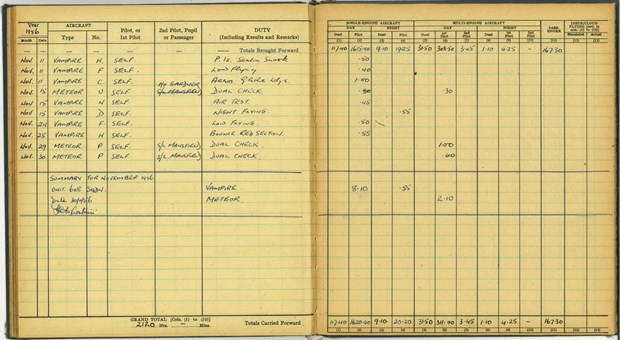 Year 1956 AIRCRAFT Pilot, or 1st Pilot 2nd Pilot, Pupil or Passenger DUTY (Including Results and Remarks)
Month Date Type No.
SINGLE-ENGINE AIRCRAFT MULTI-ENGINE AIRCRAFT PASSENGER
DAY NIGHT DAY NIGHT
Dual Pilot Dual Pilot Dual 1st Pilot 2nd Pilot Dual 1st Pilot 2nd Pilot
(1) (2) (3) (4) (5) (6) (7) (8) (9) (10) (11) (12) (13)
Totals Brought Forward 9·10 19·25 3·45 1·10 4·25 – 167·30
Nov. 11 VAMPIRE H. SELF. ·50
Nov. 11 VAMPIRE F. SELF. Low Flying ·40
Nov. 11 VAMPIRE C. SELF. 1·00
Nov. 15 METEOR U SELF. DUAL CHECK ·30
Nov. 15 VAMPIRE SELF. AIR TEST. ·45
Nov. 15 VAMPIRE D SELF. NIGHT FLYING. ·55
Nov. 24 VAMPIRE F. SELF. LOW FLYING. ·50
Nov. 25 VAMPIRE H SELF. SECTION. ·55
Nov. 29 METEOR P SELF. S/L MANSFIELD DUAL CHECK. 1·00
Nov. 30 METEOR P SELF. S/L MANSFIELD DUAL CHECK.
SUMMARY FOR NOVEMBER 1956
Unit 608 SQDN. VAMPIRE. 8·10 ·55
Date METEOR 2·10
GRAND TOTAL [Cols. (1) to (10)]
2120 Hrs. – Mins. Totals Carried Forward 9·10 20·20 3·45 1·10 4·25 – 167·30
(1) (2) (3) (4) (5) (6) (7) (8) (9) (10) (11) (12) (13)